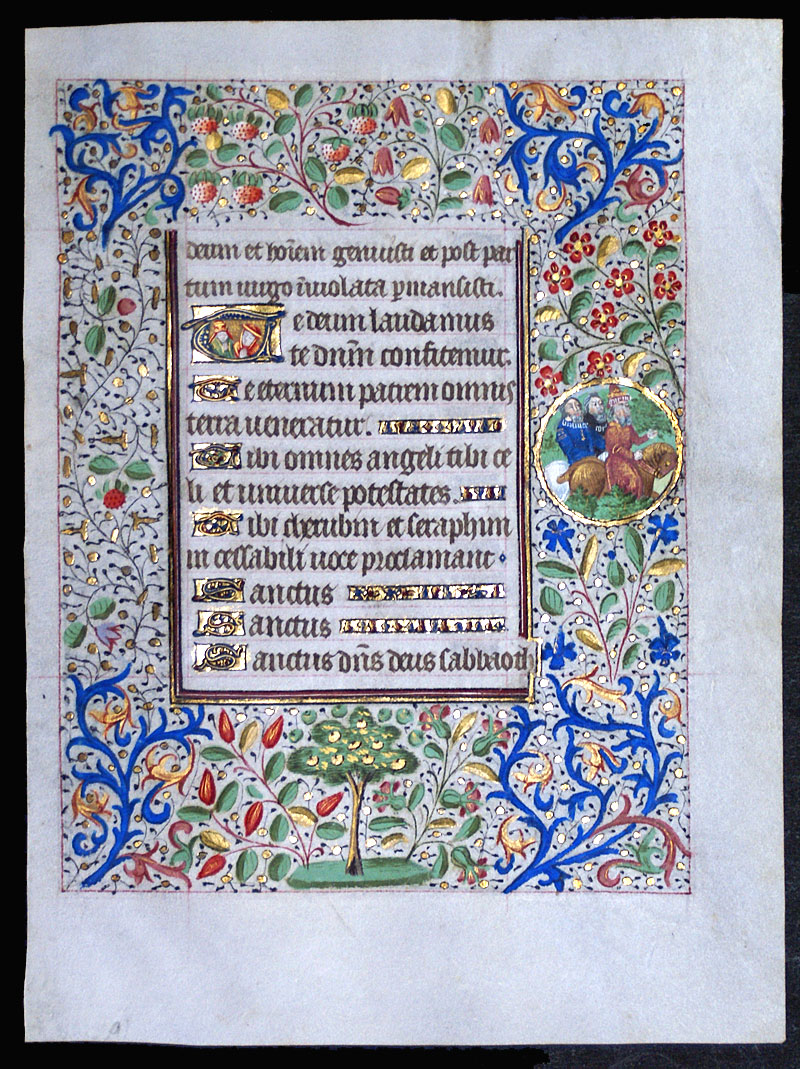 deum et hoīem genuisti et post par
tum uirgo īuiolata p̄mansisti.
Te deum laudamus
te dnm̄ confitemur.
Te eternum patrem omnis
terra ueneratur.
Tibi omnes angeli tibi ce
li et uniuerse potestates.
Tibi cherubin et seraphim
in cessabili uoce proclamant
Sanctus
Sanctus
Sanctus dn̄s deus sabbaoth